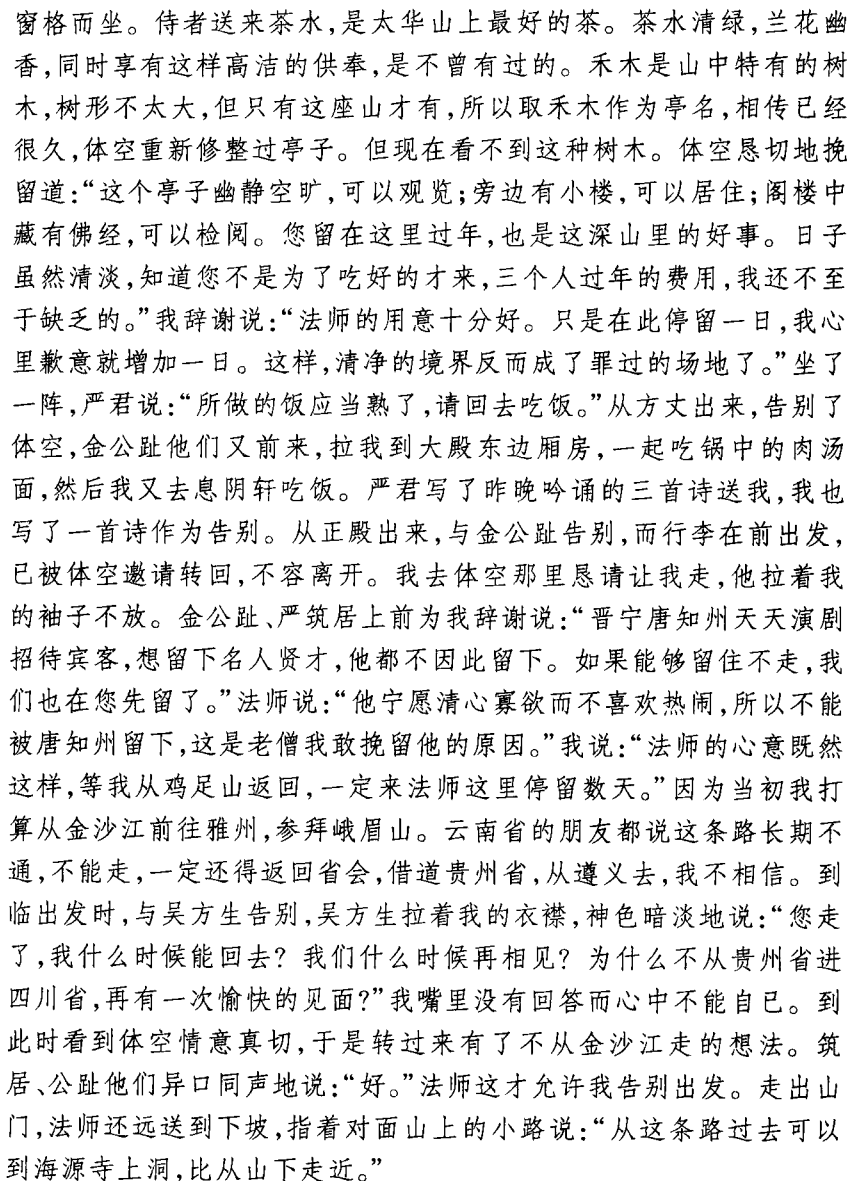 窗格而坐。侍者送来茶水,是太华山上最好的茶。茶水清绿,兰花幽
香,同时享有这样高洁的供奉,是不曾有过的。禾木是山中特有的树
木,树形不太大,但只有这座山才有,所以取禾木作为亭名,相传已经
很久,体空重新修整过亭子。但现在看不到这种树木。体空恳切地挽
留道:“这个亭子幽静空旷,可以观览;旁边有小楼,可以居住;阁楼中
藏有佛经,可以检阅。您留在这里过年,也是这深山里的好事。日子
虽然清淡,知道您不是为了吃好的才来,三个人过年的费用,我还不至
于缺乏的。”我辞谢说:“法师的用意十分好。只是在此停留一日,我心
里歉意就增加一日。这样,清净的境界反而成了罪过的场地了。”坐了
一阵,严君说:“所做的饭应当熟了,请回去吃饭。”从方丈出来,告别了
体空,金公趾他们又前来,拉我到大殿东边厢房,一起吃锅中的肉汤
面,然后我又去息阴轩吃饭。严君写了昨晚吟诵的三首诗送我,我也
写了一首诗作为告别。从正殿出来,与金公趾告别,而行李在前出发,
已被体空邀请转回,不容离开。我去体空那里恳请让我走,他拉着我
的袖子不放。金公趾、严筑居上前为我辞谢说:“晋宁唐知州天天演剧
招待宾客,想留下名人贤才,他都不因此留下。如果能够留住不走,我
们也在您先留了。”法师说:“他宁愿清心寡欲而不喜欢热闹,所以不能
被唐知州留下,这是老僧我敢挽留他的原因。”我说:“法师的心意既然
这样,等我从鸡足山返回,一定来法师这里停留数天。”因为当初我打
算从金沙江前往雅州,参拜峨眉山。云南省的朋友都说这条路长期不
通,不能走,一定还得返回省会,借道贵州省,从遵义去,我不相信。到
临出发时,与吴方生告别,吴方生拉着我的衣襟,神色暗淡地说:“您走
了,我什么时候能回去?我们什么时候再相见?为什么不从贵州省进
四川省,再有一次愉快的见面?”我嘴里没有回答而心中不能自已。到
此时看到体空情意真切,于是转过来有了不从金沙江走的想法。筑
居、公趾他们异口同声地说:“好。”法师这才允许我告别出发。走出山
门,法师还远送到下坡,指着对面山上的小路说:“从这条路过去可以
到海源寺上洞,比从山下走近。”